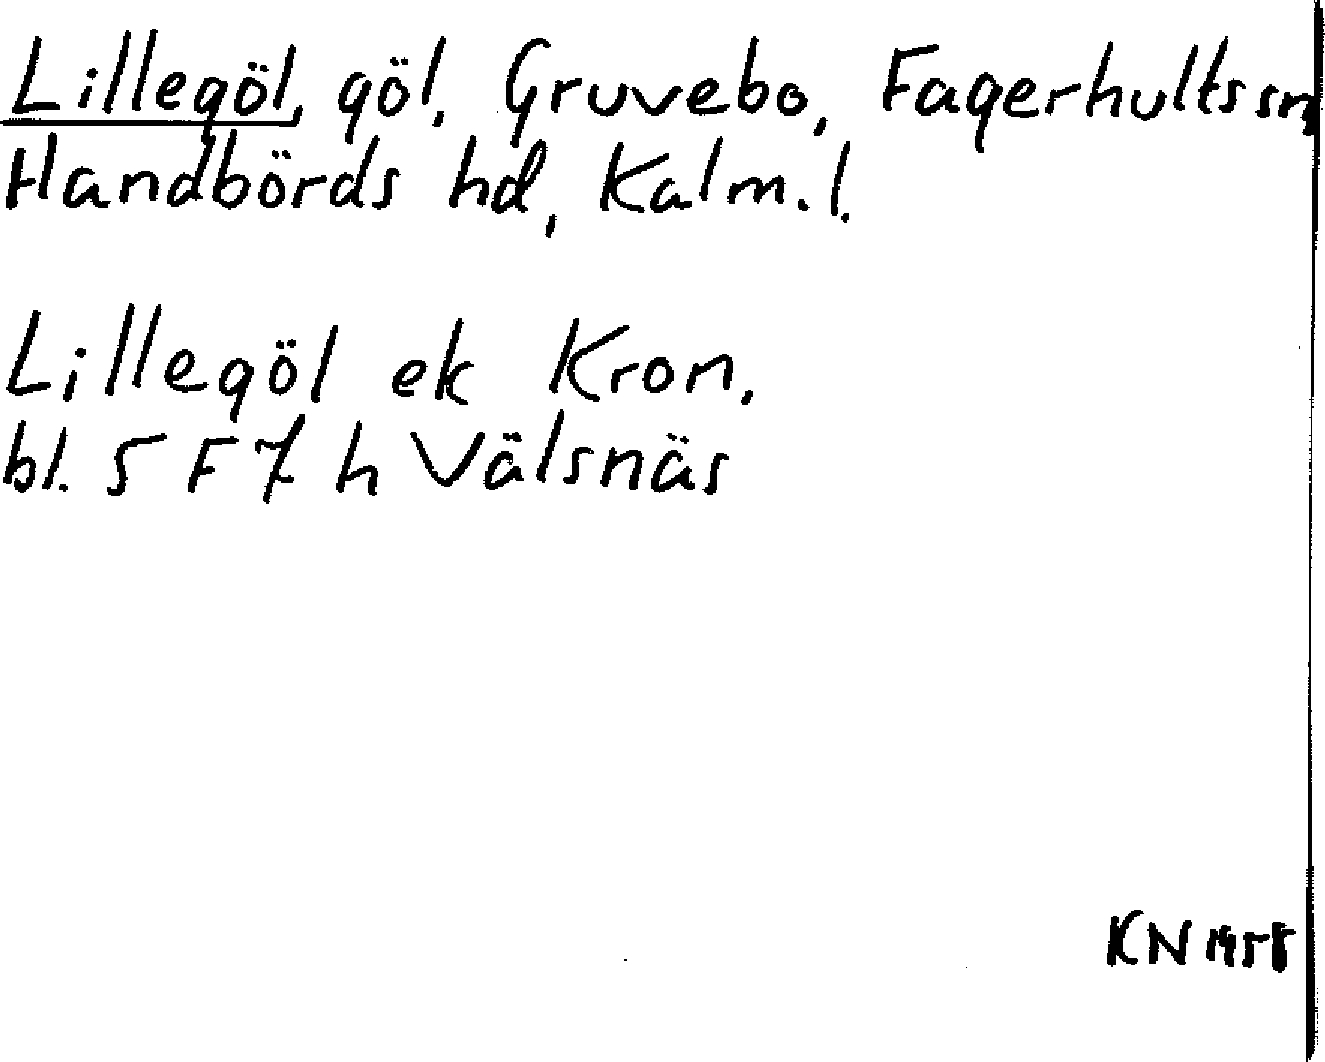 Lillegöl, göl, Gruvebo, Fagerhults sn
Handbörds hd, Kalm. l.
Lillegöl ek Kron.
bl. 5 F 7 h Välsnäs
KN